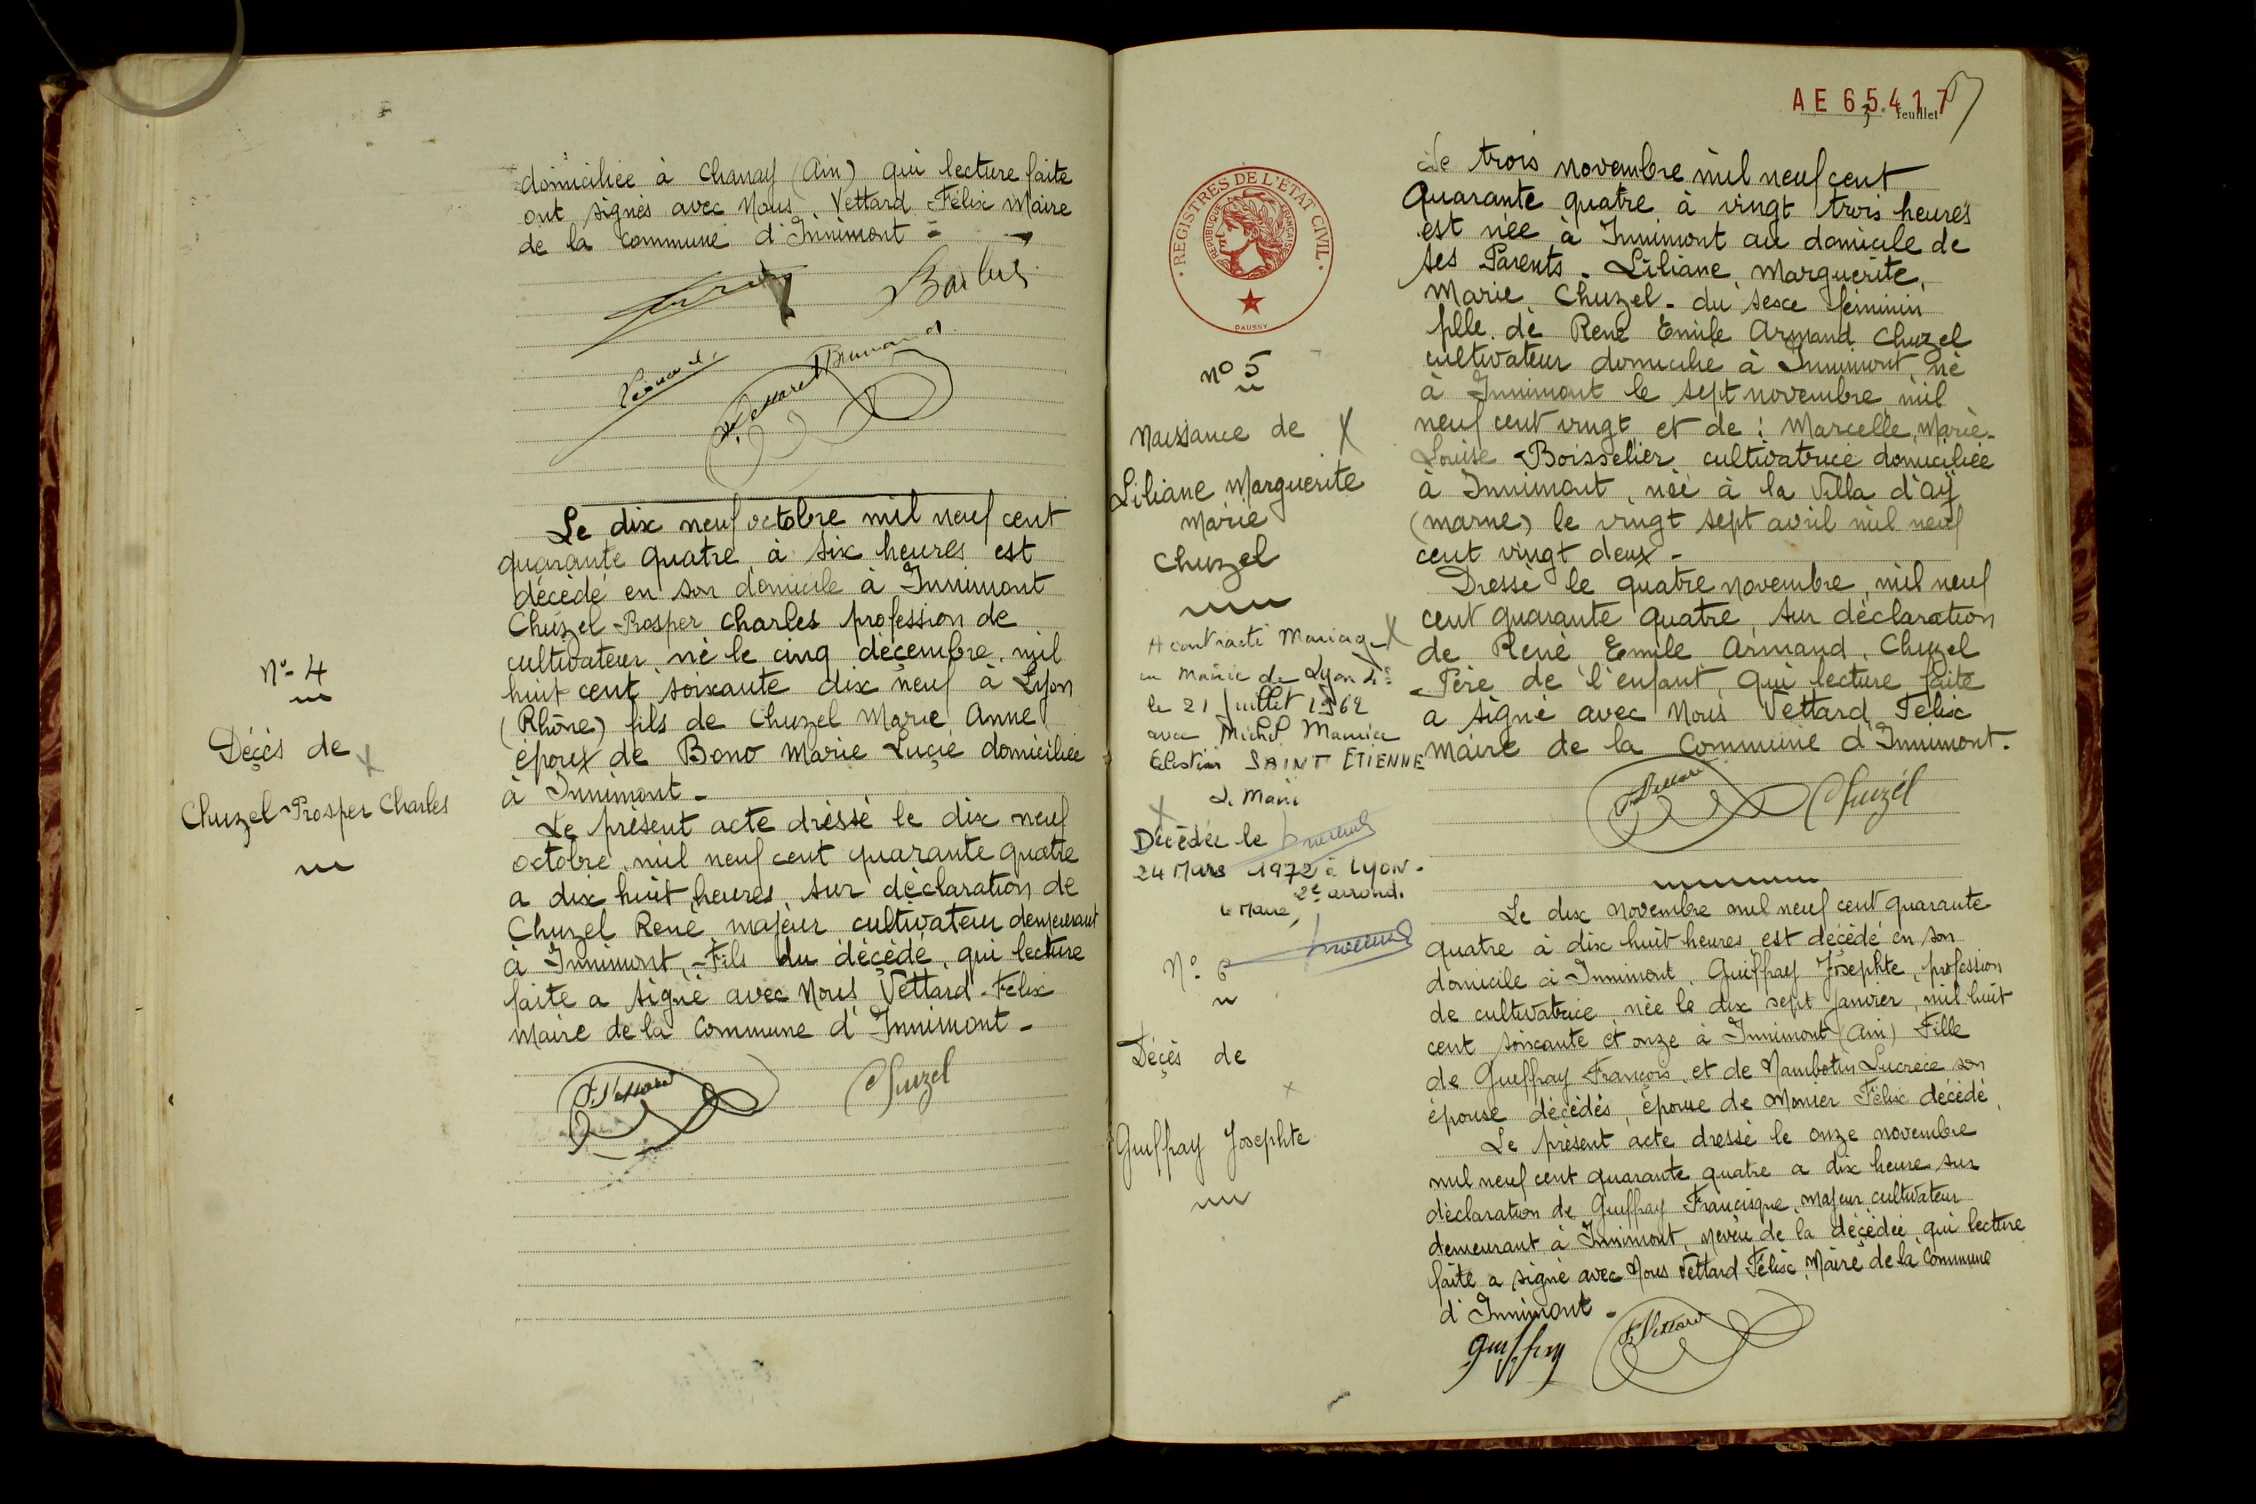 domiciliée à Chanay (Ain) qui lecture faite
ont signés avec Nous Vettard Félix Maire
de la commune d'Innimont =
Barbus
F. Vettard
N° 4
Décès de
Chuzel Prosper Charles
Le dix neuf octobre mil neuf cent
quarante quatre à six heures est
décédé en son domicile à Innimont
Chuzel Prosper Charles profession de
cultivateur né le cinq décembre mil
huit cent soixante dix neuf à Lyon
(Rhône) fils de Chuzel Marie Anne
époux de Bono Marie Lucie domiciliée
à Innimont -
Le présent acte dréssé le dix neuf
octobre mil neuf cent quarante quatre
a dix huit heures sur déclaration de
Chuzel René majeur cultivateur demeurant
à Innimont, Fils du décédé, qui lecture
faite a signé avec Nous Vettard Felix
Maire de la Commune d'Innimont -
F. Vettard
Chuzel
AE 65417
3e feuillet
REGISTRES DE L'ETAT CIVIL
REPUBLIQUE FRANÇAISE
DAUSSY
N° 5
Naissance de
Liliane Marguerite
Marie
Chuzel
A contracté Mariage
en Mairie de Lyon
le 21 Juillet 1962
avec Michel Maurice
Célestin SAINT ETIENNE
Le Maire
Décédée le
24 Mars 1972 à Lyon.
2e arrond.
le Maire,
Le trois novembre mil neuf cent
Quarante quatre à vingt trois heures
est née à Innimont au domicile de
ses Parents. Liliane, Marguerite,
Marie, Chuzel. du sexe féminin
fille de René Emile Armand Chuzel
cultivateur domicilié à Innimont, né
à Innimont le sept novembre mil
neuf cent vingt et de : Marcelle, Marie-
Louise Boisselier cultivatrice domiciliée
à Innimont, née à la Villa d'Aÿ
(marne) le vingt sept avril mil neuf
cent vingt deux -
Dressé le quatre novembre, mil neuf
cent quarante quatre, sur déclaration
de René Emile Armand, Chuzel
Père de l'enfant, qui lecture faite
a signé avec Nous Vettard Félix
Maire de la Commune d'Innimont.
F. Vettard
Chuzel
N° 6
Décès de
Guiffray Josephte
Le dix Novembre mil neuf cent quarante
quatre à dix huit heures est décédé en son
domicile à Innimont, Guiffray Josephte, profession
de cultivatrice, née le dix sept Janvier, mil huit
cent soixante et onze à Innimont (Ain) Fille
de Guiffray François, et de Nambotin Lucrèce son
épouse décédés, épouse de Monier Félix décédé,
Le présent acte dressé le onze novembre
mil neuf cent quarante quatre a dix heure sur
déclaration de Guiffray Francisque, majeur cultivateur
demeurant à Innimont, neveu de la décédée, qui lecture
faite a signé avec Nous Vettard Félix, Maire de la Commune
d'Innimont -
Guiffray
F. Vettard